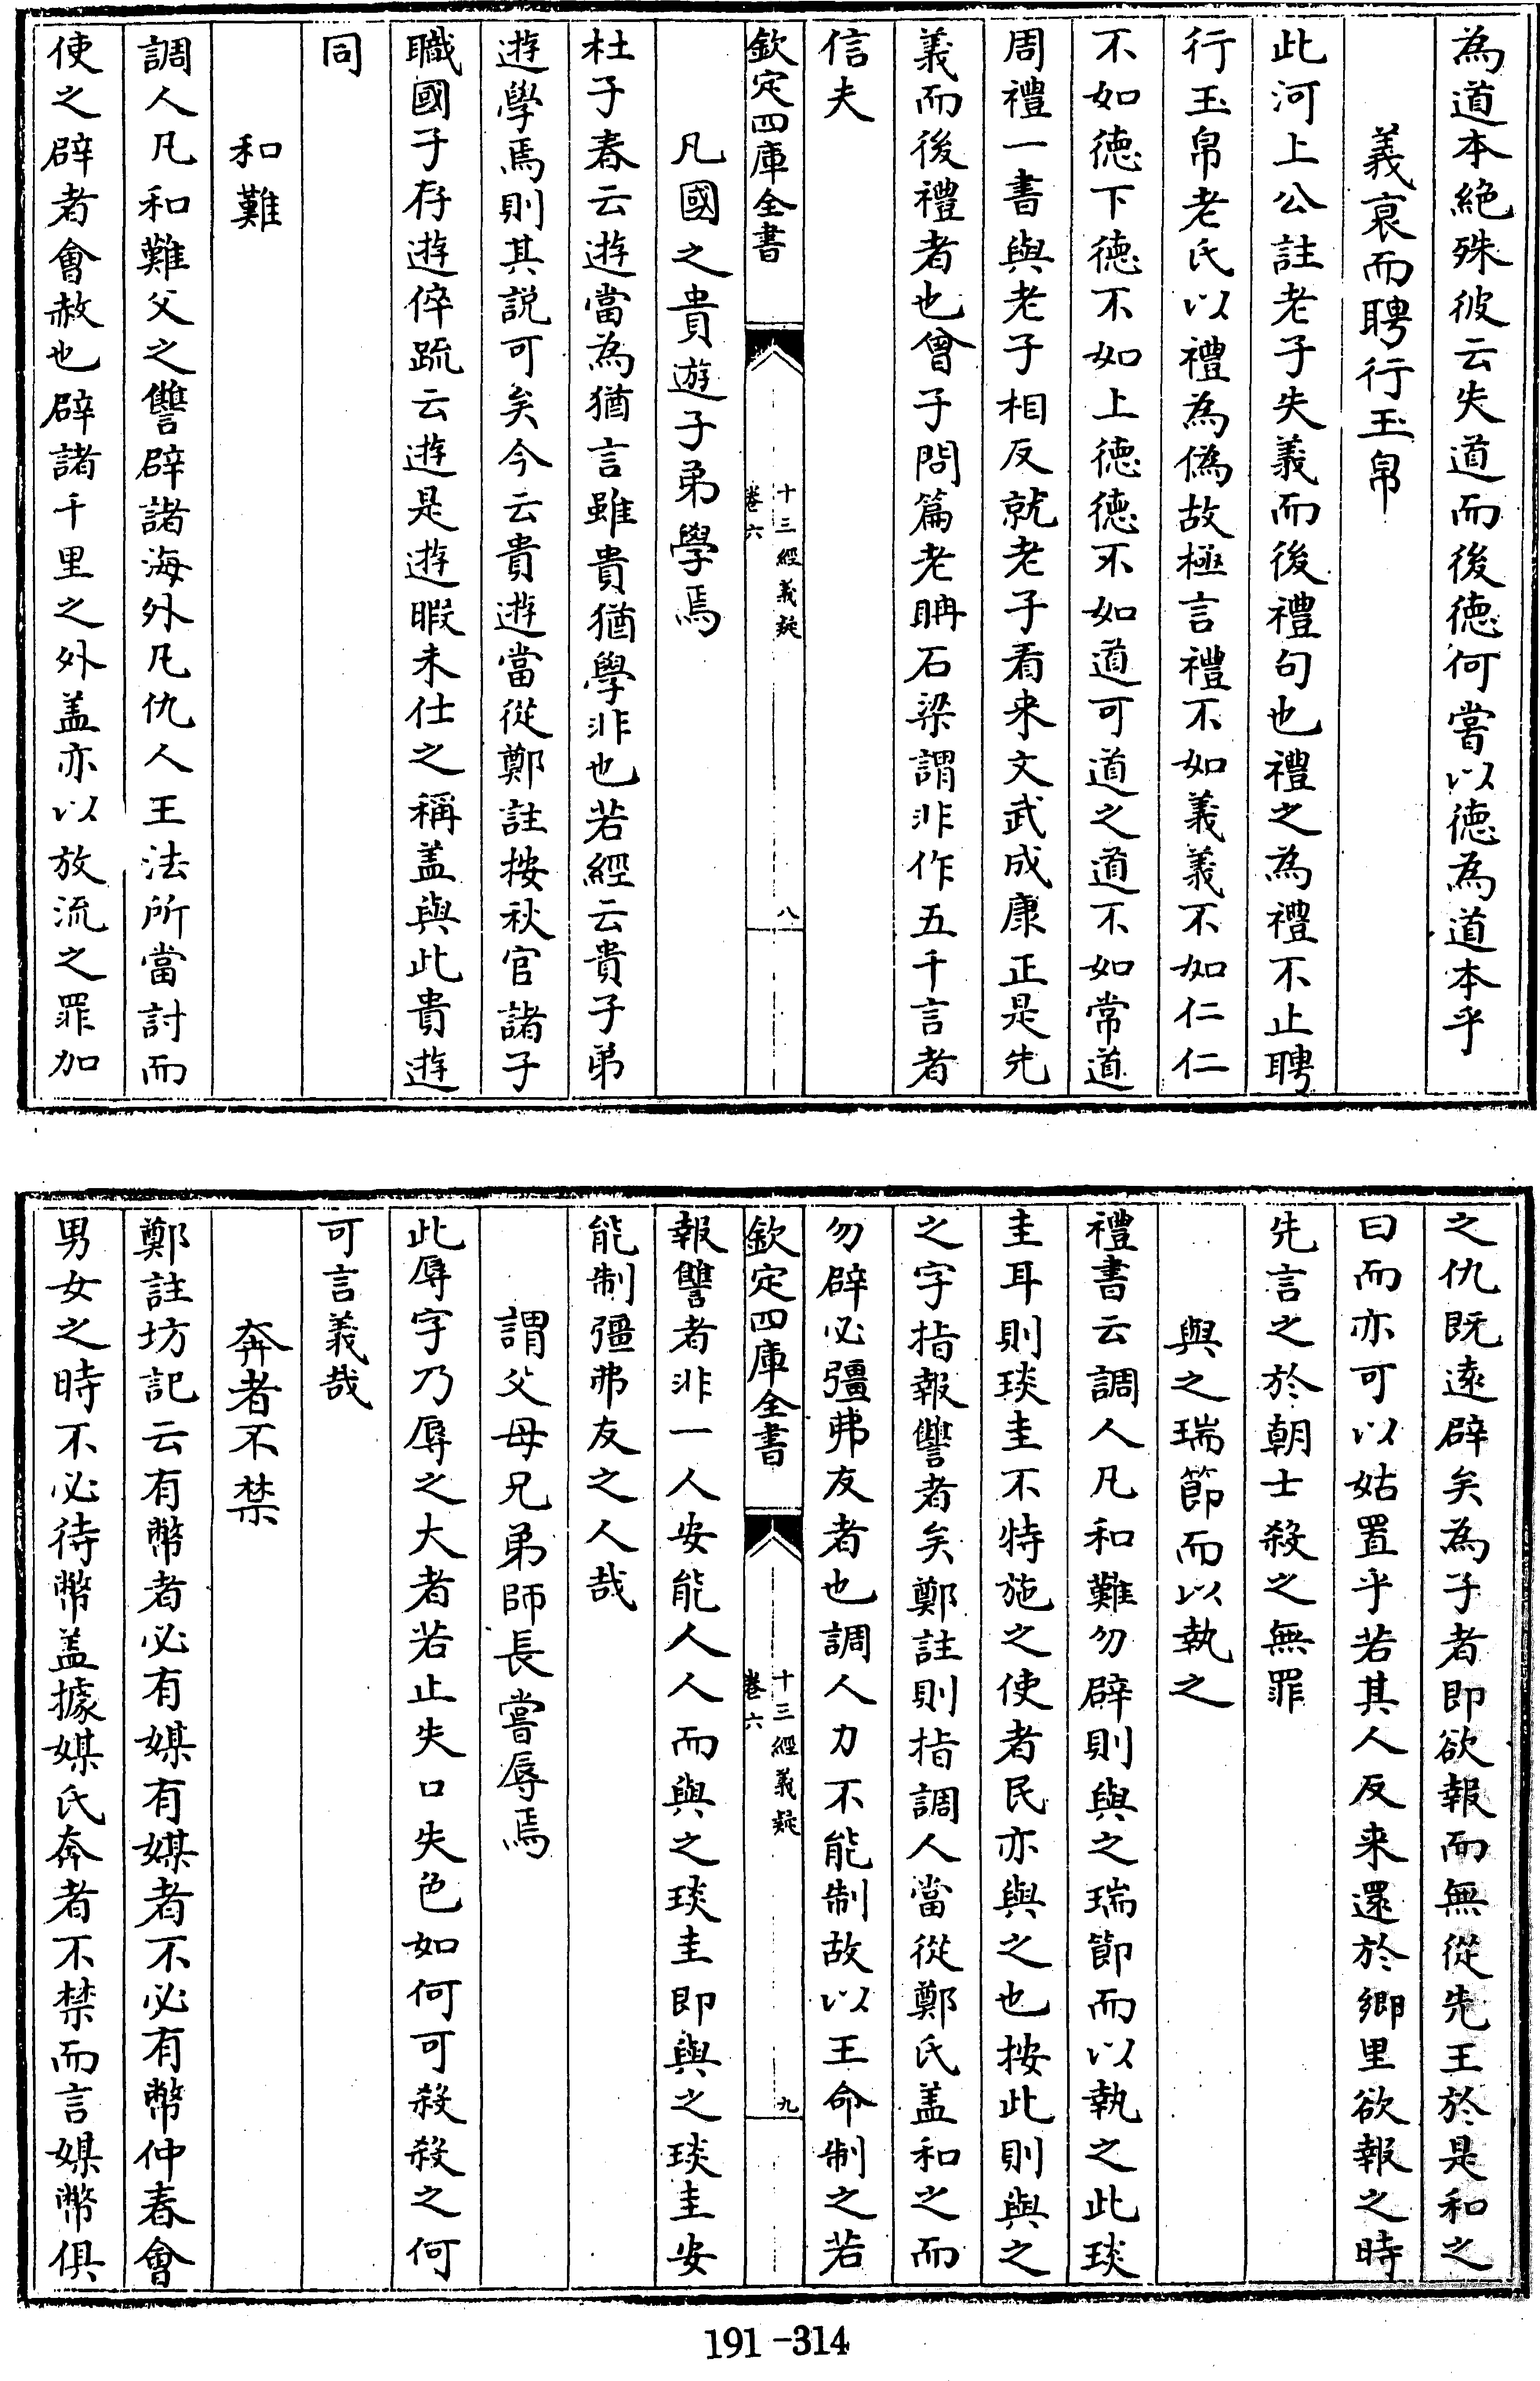 為道本絶殊彼云失道而後德何嘗以德為道本乎
義衰而聘行玉帛
此河上公註老子失義而後禮句也禮之為禮不止聘
行玉帛老氏以禮為偽故極言禮不如義義不如仁仁
不如德下德不如上德德不如道可道之道不如常道
周禮一書與老子相反就老子看来文武成康正是先
義而後禮者也曾子問篇老聃石梁謂非作五千言者
信夫
欽定四庫全書
十三經義疑
卷六
八
凡國之貴遊子弟學焉
杜子春云遊當為猶言雖貴猶學非也若經云貴子弟
遊學焉則其説可矣今云貴遊當從鄭註按秋官諸子
職國子存遊倅疏云遊是遊暇未仕之稱盖與此貴遊
同
和難
調人凡和難父之讐辟諸海外凡仇人王法所當討而
使之辟者會赦也辟諸千里之外盖亦以放流之罪加
之仇既遠辟矣為子者即欲報而無從先王於是和之
曰而亦可以姑置乎若其人反来還於鄉里欲報之時
先言之於朝士殺之無罪
與之瑞節而以執之
禮書云調人凡和難勿辟則與之瑞節而以執之此琰
圭耳則琰圭不特施之使者民亦與之也按此則與之
之字指報讐者矣鄭註則指調人當從鄭氏盖和之而
勿辟必彊弗友者也調人力不能制故以王命制之若
欽定四庫全書
十三經義疑
卷六
九
報讐者非一人安能人人而與之琰圭即與之琰圭安
能制彊弗友之人哉
謂父母兄弟師長嘗辱焉
此辱字乃辱之大者若止失口失色如何可殺殺之何
可言義哉
奔者不禁
鄭註坊記云有幣者必有媒有媒者不必有幣仲春會
男女之時不必待幣盖據媒氏奔者不禁而言媒幣俱
191-314